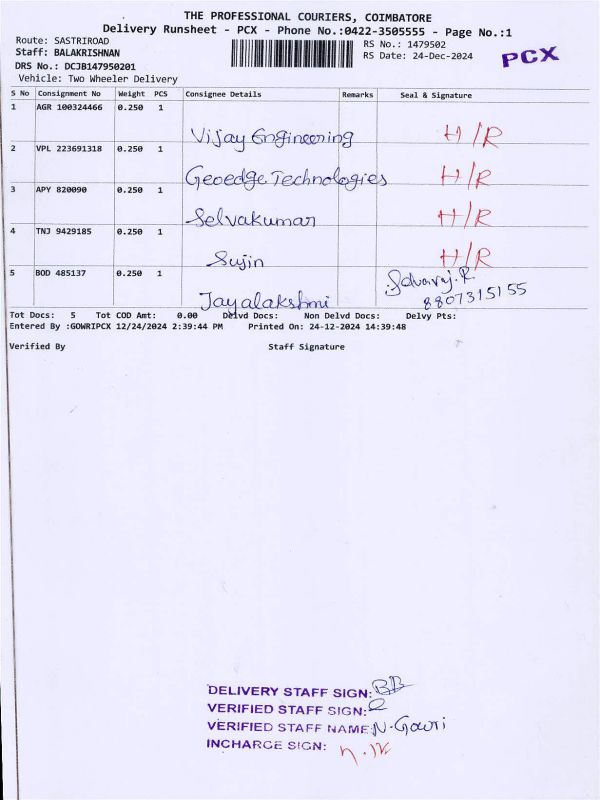 THE PROFESSIONAL COURIERS, COIMBATORE
Delivery Runsheet - PCX - Phone No.:0422-3505555 - Page No.:1
Route: SASTRIROAD
RS No.: 1479502
Staff: BALAKRISHNAN
RS Date: 24-Dec-2024
PCX
DRS No.: DCJB147950201
Vehicle: Two Wheeler Delivery
S No Consignment No Weight PCS Consignee Details Remarks Seal & Signature
1 AGR 100324466 0.250 1
Vijay Engineering H/R
2 VPL 223691318 0.250 1
Geoedge Technologies H/R
3 APY 820090 0.250 1
Selvakumar H/R
4 TNJ 9429185 0.250 1
Sujin H/R
5 BOD 485137 0.250 1
Jayalakshmi
8807315155
Tot Docs: 5 Tot COD Amt: 0.00 Delvd Docs: Non Delvd Docs: Delvy Pts:
Entered By :GOWRIPCX 12/24/2024 2:39:44 PM Printed On: 24-12-2024 14:39:48
Verified By Staff Signature
DELIVERY STAFF SIGN: BB
VERIFIED STAFF SIGN:
VERIFIED STAFF NAME: N. Gowri
INCHARGE SIGN: